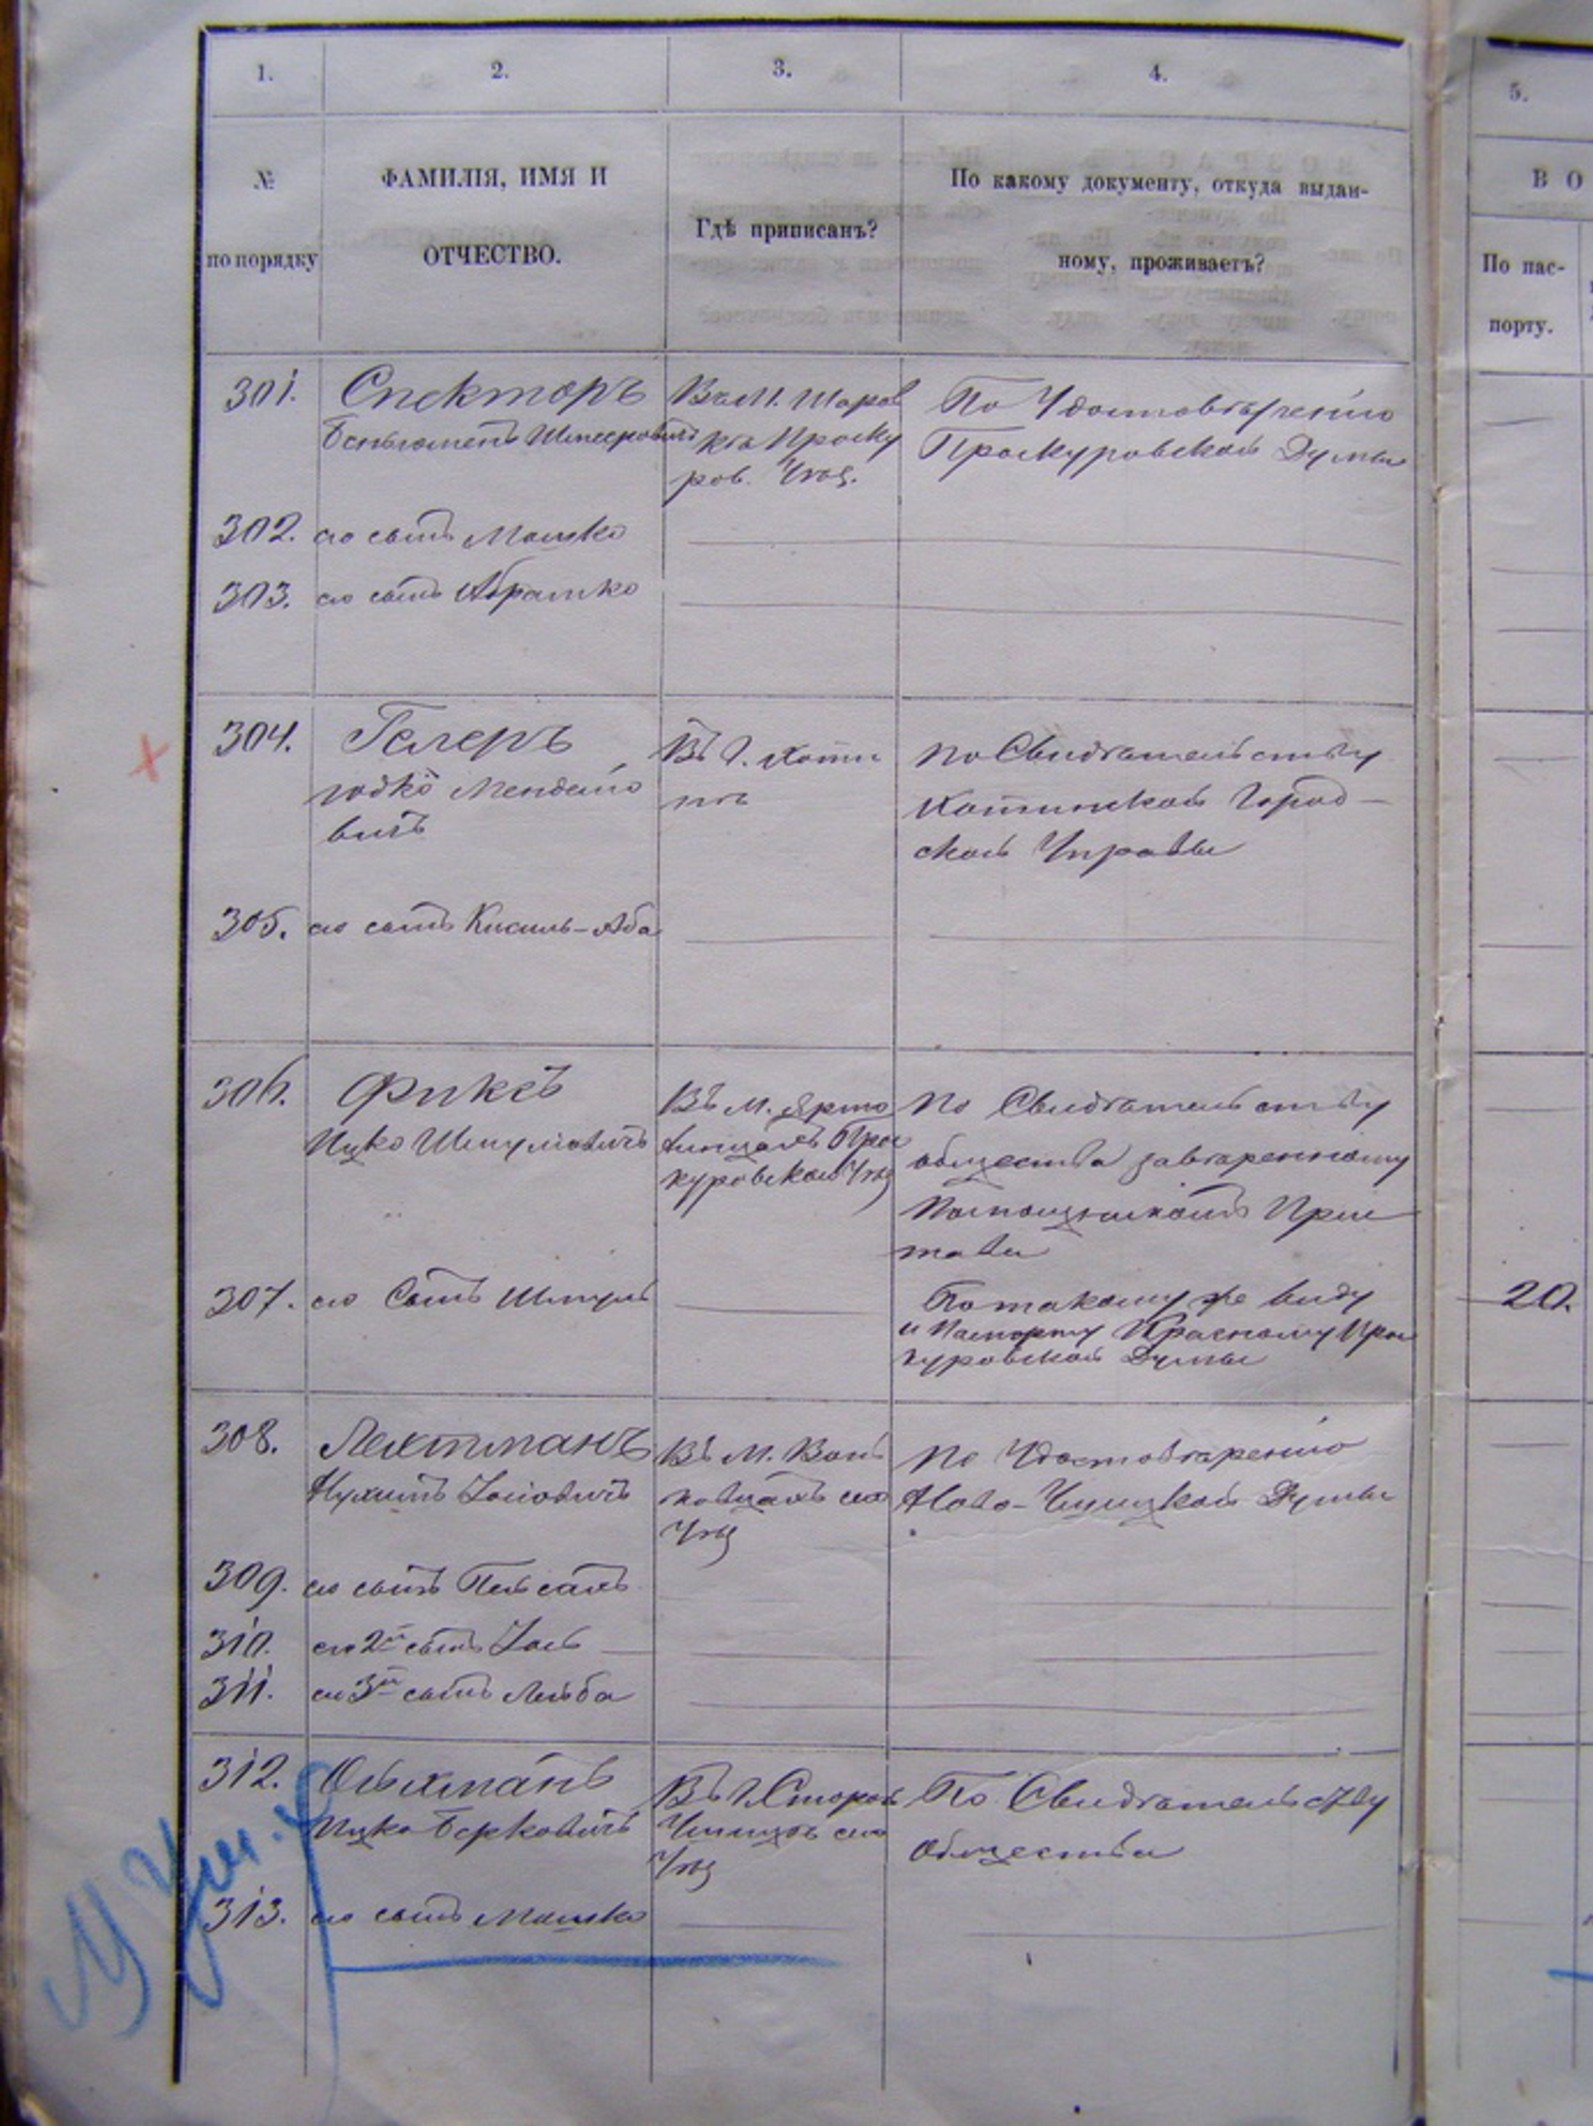 1. 2. 3. 4. 5.
№ по порядку
ФАМИЛІЯ, ИМЯ И
ОТЧЕСТВО.
Гдѣ приписанъ?
По какому документу, откуда выдан-
ному, проживаетъ?
В О
По пас-
порту.
301. Спекторъ
Беньюменъ Шмееровичъ
Въ М. Шаров
кѣ Проску
ров. Уѣз.
По Удостовѣренію
Проскуровской Думы
302. его сынъ Мошко
303. его сынъ Абрамко
304. Гелеръ
Юдко Менделіо
вичъ
Въ Г. Хоти
нѣ
По Свидѣтельству
Хотинской Город-
ской Управы
305. его сынъ Кисиль-Аба
306. Фиксъ
Ицко Шмулиовичъ
Въ М. Ярмо
линцахъ Прос
куровскаго Уѣз
По Свидѣтельству
общества завѣренному
Помощникомъ При
става
307. его Сынъ Шмуль
По такому же виду
и Паспорту Красному Прос
куровской Думы
20.
308. Лехтманъ
Нухимъ Іосіовичъ
Въ М. Вонь
ковцахъ сего
Уѣз
По Удостовѣренію
Ново-Ушицкой Думы
309. его сынъ Пейсахъ
310. его 2й сынъ Іось
311. его 3й сынъ Лейба
312. Ойхманъ
Ицко Берковичъ
Въ Г. Старой
Ушицѣ сего
Уѣз
По Свидѣтельству
Общества
313. его сынъ Мошко